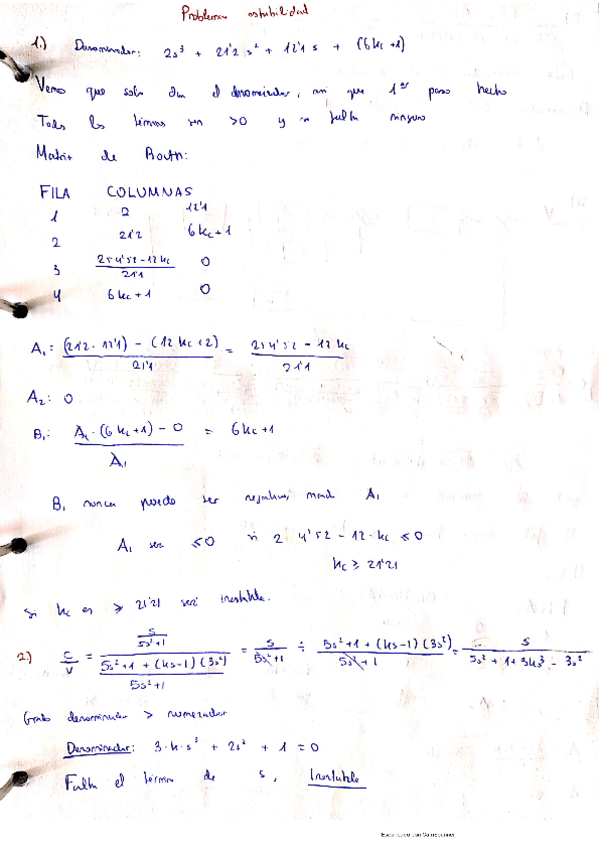 Problemas estabilidad
1.) Denominador: 2s³ + 21'2 s² + 12'1 s + (6kc+1)
Vemos que solo dan el denominador, así que 1er paso hecho
Todos los términos son >0 y no falta ninguno
Matriz de Routh:
FILA COLUMNAS
1 2 12'1
2 21'2 6kc+1
3 (254'52-12kc)/21'1 0
4 6kc+1 0
A₁: ((21'2 · 12'1) - (12kc+2))/21'1 = (254'52 - 12kc)/21'1
A₂: 0
B₁: (A₁·(6kc+1) - 0)/A₁ = 6kc+1
B₁ nunca puede ser A₁
A₁ sea ≤0 si 2 4'52 - 12·kc ≤0
kc ≥ 21'21
Si kc es ≥ 21'21 será inestable.
2.) C/V = (s/(5s²+1))/((5s²+1+(ks-1)(3s²))/(5s²+1)) = s/(5s²+1) ÷ (5s²+1+(ks-1)(3s²))/(5s²+1) = s/(5s²+1+3ks³-3s²)
Grado denominador > numerador
Denominador: 3·k·s³ + 2s² + 1 = 0
Falta el término de s, Inestable
Escaneado con CamScanner